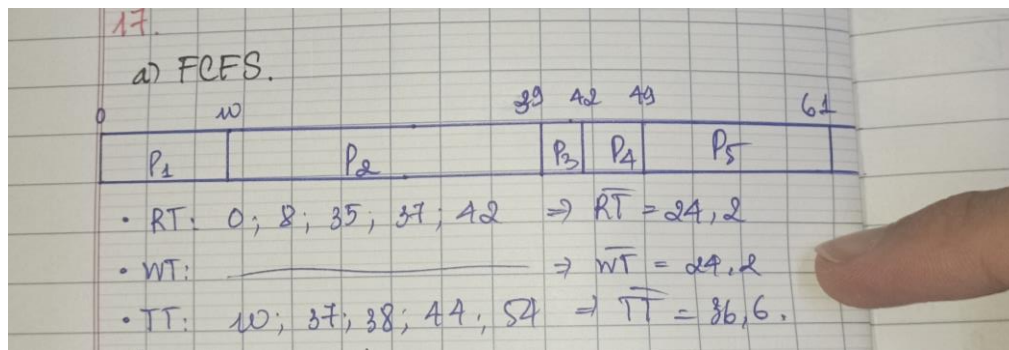 17.
a) FCFS.
0 10 39 42 49 61
P1 P2 P3 P4 P5
• RT: 0; 8; 35; 37; 42 ⇒ RT̅ = 24,2
• WT: ———— ⇒ WT̅ = 24,2
• TT: 10; 37; 38; 44; 54 ⇒ TT̅ = 36,6.